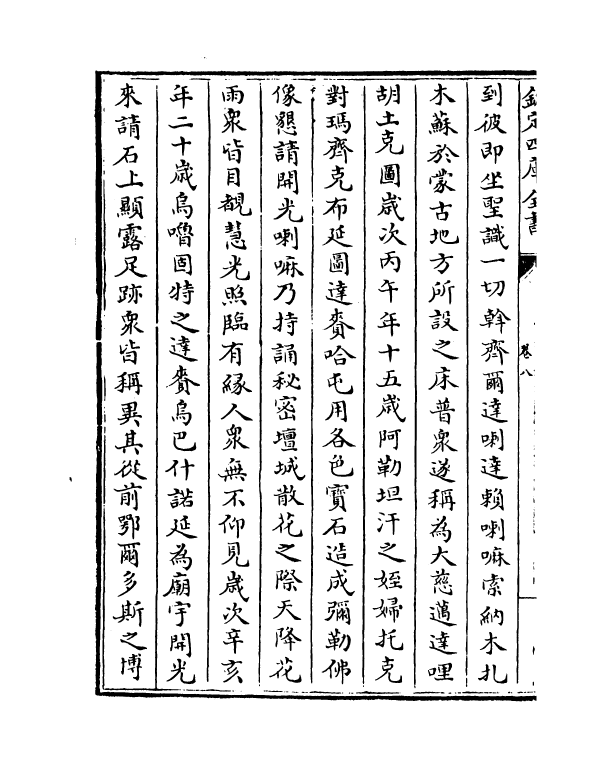 欽定四庫全書
卷八
到彼即坐聖識一切幹齊爾達喇達賴喇嘛索納木扎
木蘇於蒙古地方所設之床普衆遂稱為大慈邁達哩
胡土克圖歲次丙午年十五歲阿勒坦汗之姪婦托克
對瑪齊克布延圖達賚哈屯用各色寶石造成彌勒佛
像懇請開光喇嘛乃持誦秘密壇城散花之際天降花
雨衆皆目覩慧光照臨有緣人衆無不仰見歲次辛亥
年二十歲烏嚕固特之達賚烏巴什諾延為廟宇開光
來請石上顯露足跡衆皆稱異其從前鄂爾多斯之博